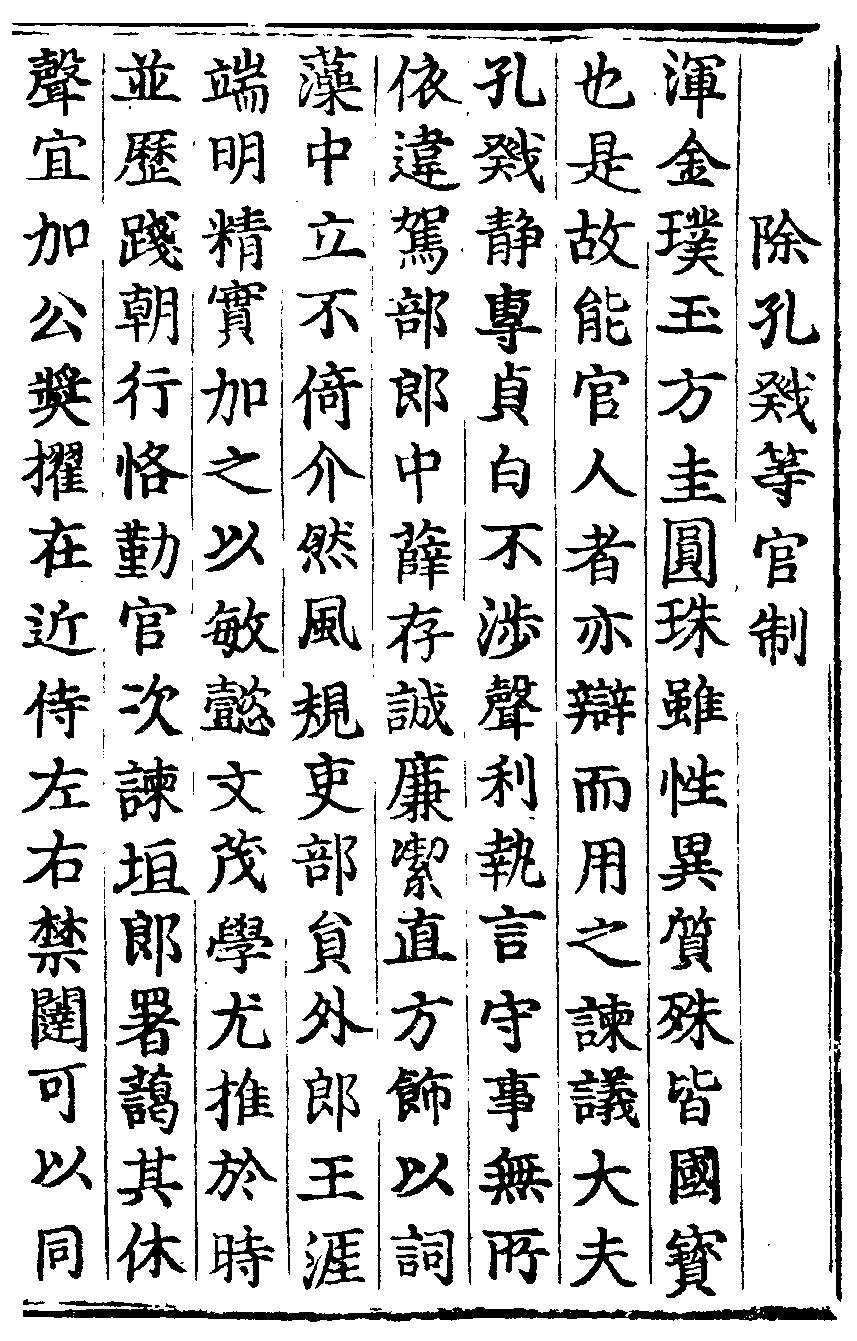 除孔戣等官制
渾金璞玉方圭圓珠雖性異質殊皆國寳
也是故能官人者亦辯而用之諫議大夫
孔戣静專貞白不渉聲利執言守事無所
依違駕部郎中薛存誠廉潔直方飾以詞
藻中立不倚介然風規吏部貟外郎王涯
端明精實加之以敏懿文茂學尤推於時
並歷踐朝行恪勤官次諫垣郎署藹其休
聲宜加公奬擢在近侍左右禁闥可以同